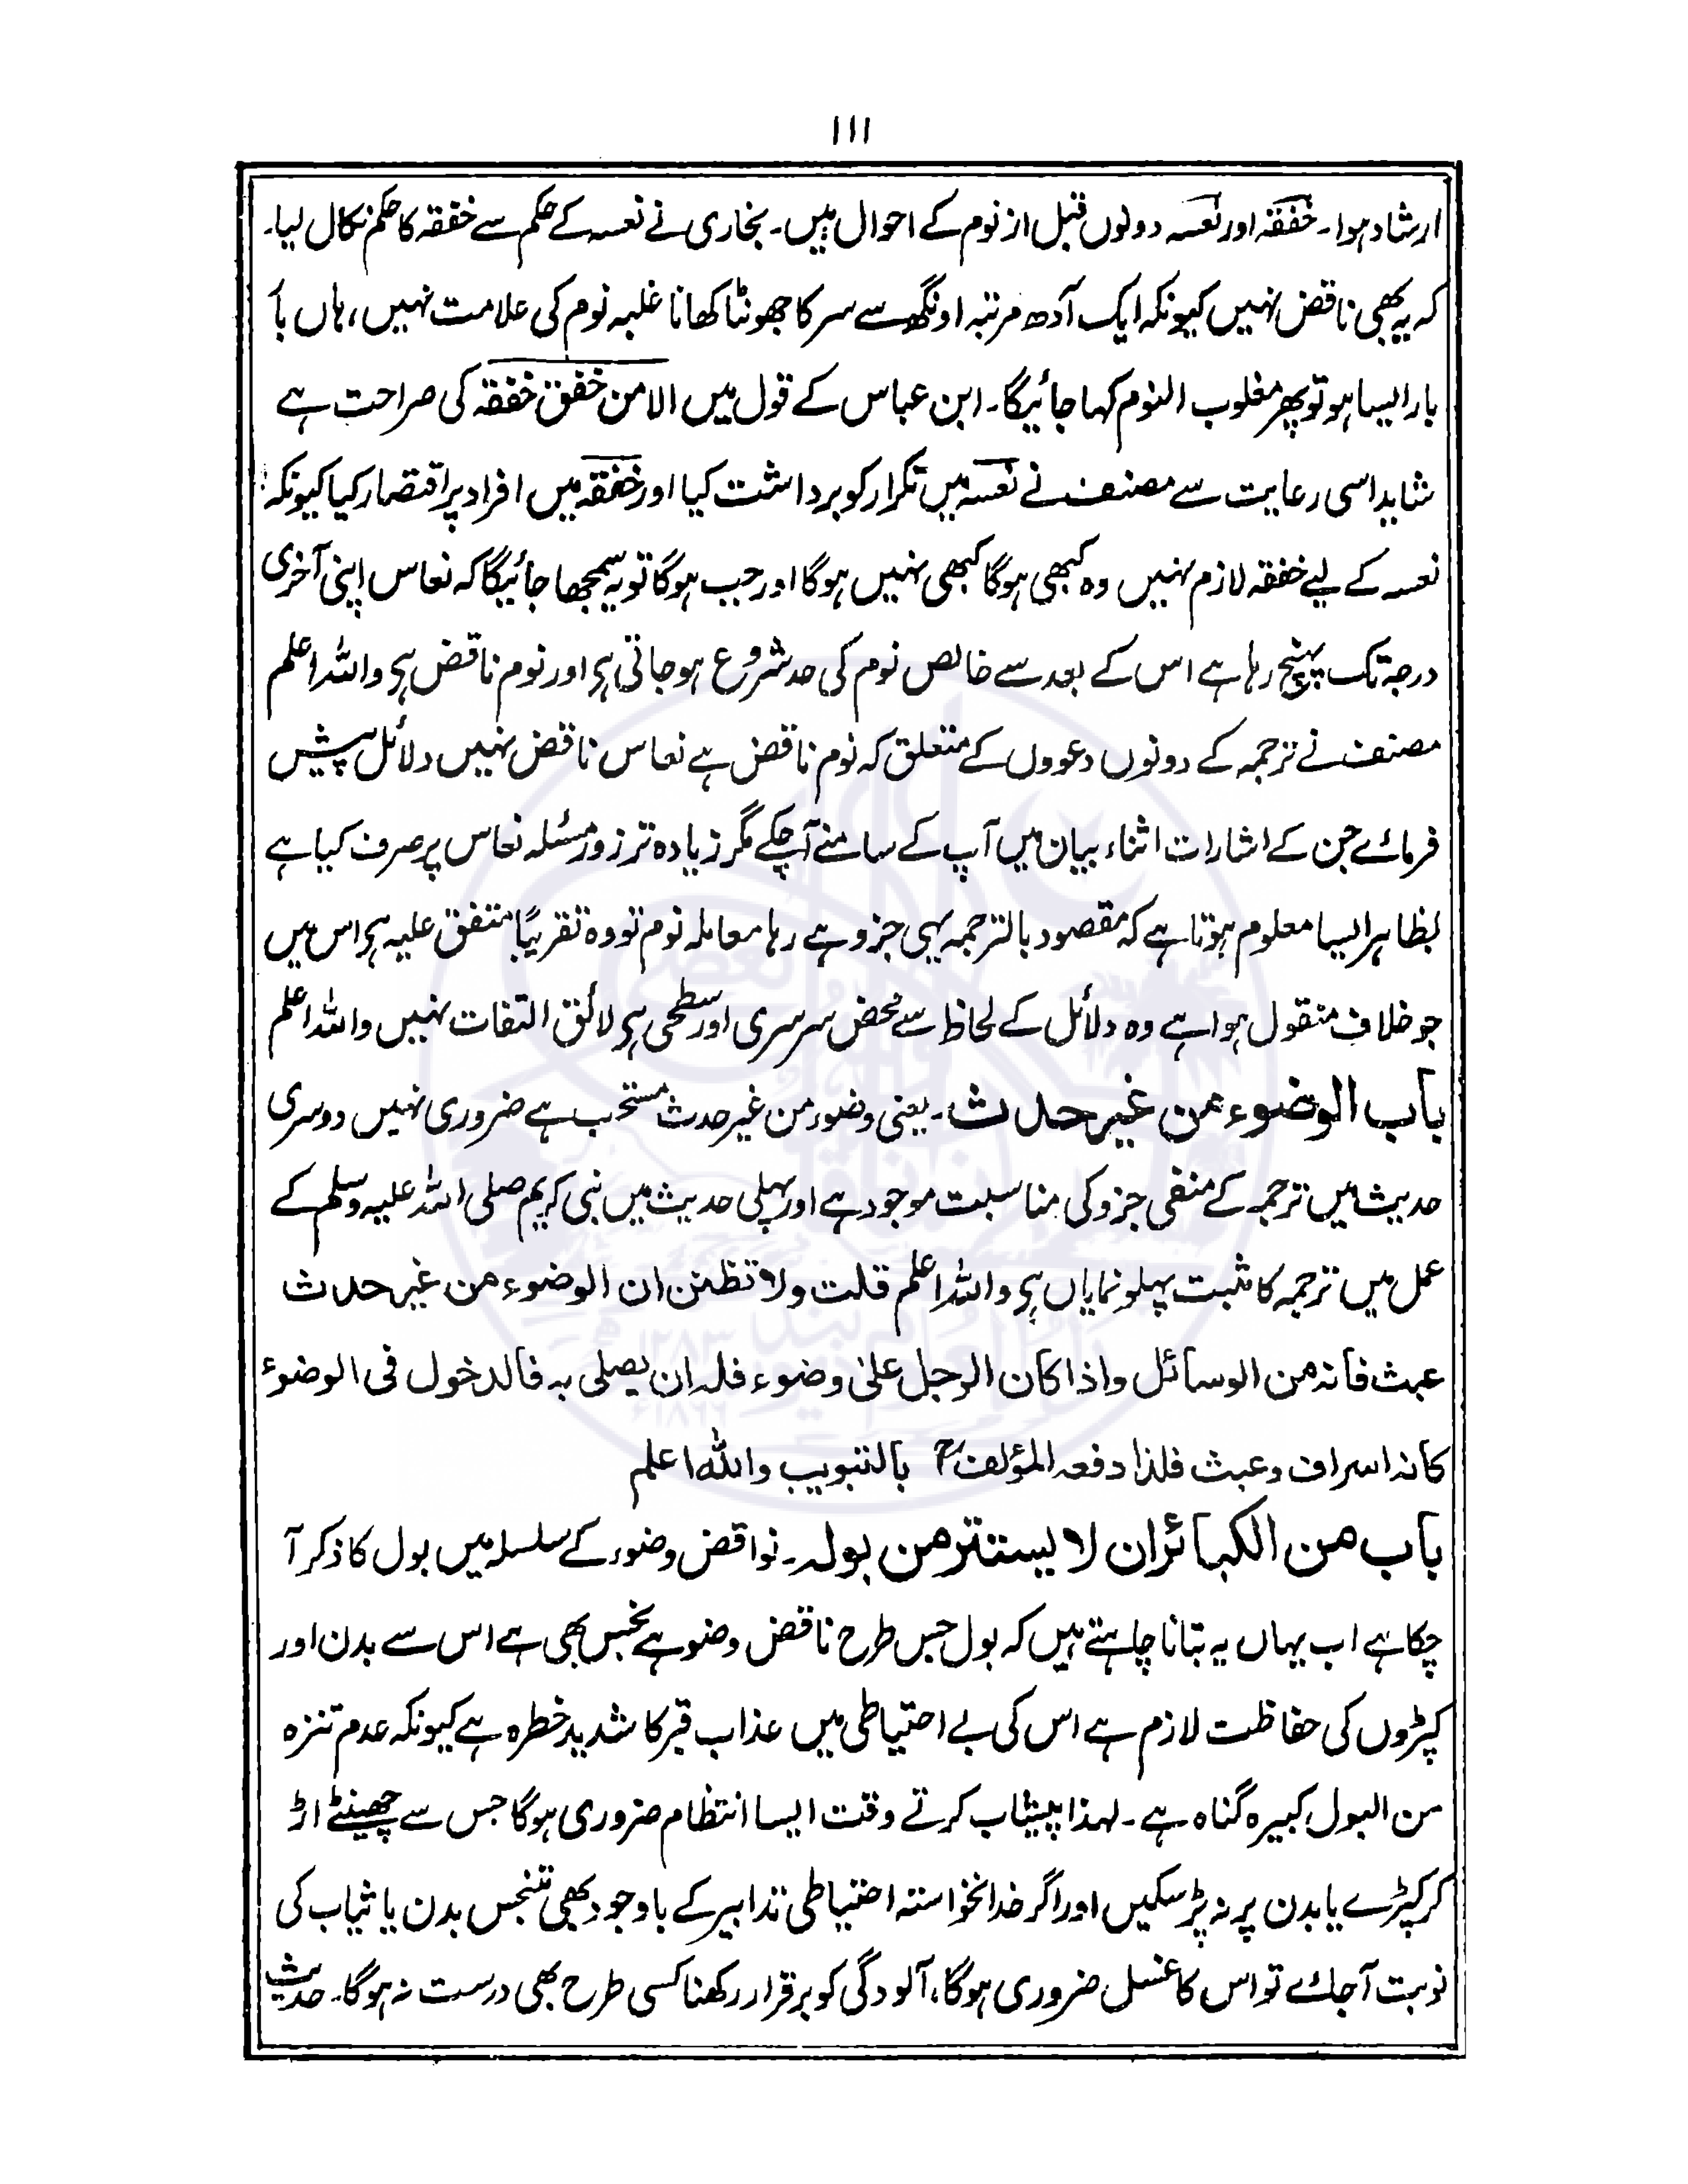 ۱۱۱
ارشاد ہوا۔ خفقہ اور نعسہ دونوں قبل از نوم کے احوال ہیں۔ بخاری نے نعسہ کے حکم سے خفقہ کا حکم نکال لیا۔
کہ یہ بھی ناقض نہیں کیونکہ ایک آدھ مرتبہ اونگھ سے سر کا جھونٹا کھانا غلبہ نوم کی علامت نہیں، ہاں بار
بار ایسا ہو تو پھر مغلوب النوم کہا جائیگا۔ ابن عباس کے قول میں الامن خفق خفقہ کی صراحت ہے
شاید اسی رعایت سے مصنف نے نعسہ میں تکرار کو برداشت کیا اور خفقہ میں افراد پر اقتصار کیا کیونکہ
نعسہ کے لیے خفقہ لازم نہیں وہ کبھی ہوگا کبھی نہیں ہوگا اور جب ہوگا تو یہ سمجھا جائیگا کہ نعاس اپنی آخری
درجہ تک پہنچ رہا ہے اس کے بعد سے خالص نوم کی حد شروع ہو جاتی ہی اور نوم ناقض ہی واللہ اعلم
مصنف نے ترجمہ کے دونوں دعووں کے متعلق کہ نوم ناقض ہے نعاس ناقض نہیں دلائل پیش
فرمائے جن کے اشارات اثناء بیان میں آپ کے سامنے آچکے مگر زیادہ تر زور مسئلہ نعاس پر صرف کیا ہے
بظاہر ایسا معلوم ہوتا ہے کہ مقصود بالترجمہ یہی جزو ہے رہا معاملہ نوم تو وہ تقریبًا متفق علیہ ہی اس میں
جو خلاف منقول ہوا ہے وہ دلائل کے لحاظ سے محض سرسری اور سطحی ہی لائق التفات نہیں واللہ اعلم
باب الوضوء من غیر حدث۔ یعنی وضوء من غیر حدث مستحب ہے ضروری نہیں دوسری
حدیث میں ترجمہ کے منفی جزو کی مناسبت موجود ہے اور پہلی حدیث میں نبی کریم صلی اللہ علیہ وسلم کے
عمل میں ترجمہ کا مثبت پہلو نمایاں ہی واللہ اعلم قلت ولا تظنن ان الوضوء من غیر حدث
عبث فانہ من الوسائل واذا کان الرجل علیٰ وضوء فلہ ان یصلی بہ فالدخول فی الوضوء
کانہ اسراف وعبث فلذا دفعہ المؤلفؒ بالتبویب واللہ اعلم
باب من الکبائر ان لا یستتر من بولہ۔ نواقض وضوء کے سلسلہ میں بول کا ذکر آ
چکا ہے اب یہاں یہ بتانا چاہتے ہیں کہ بول جس طرح ناقض وضو ہے نجس بھی ہے اس سے بدن اور
کپڑوں کی حفاظت لازم ہے اس کی بے احتیاطی میں عذاب قبر کا شدید خطرہ ہے کیونکہ عدم تنزہ
من البول کبیرہ گناہ ہے۔ لہذا پیشاب کرتے وقت ایسا انتظام ضروری ہوگا جس سے چھینٹے اڑ
کر کپڑے یا بدن پر نہ پڑ سکیں اور اگر خدانخواستہ احتیاطی تدابیر کے باوجود بھی تنجس بدن یا ثیاب کی
نوبت آجائے تو اس کا غسل ضروری ہوگا، آلودگی کو برقرار رکھنا کسی طرح بھی درست نہ ہوگا۔ حدیث